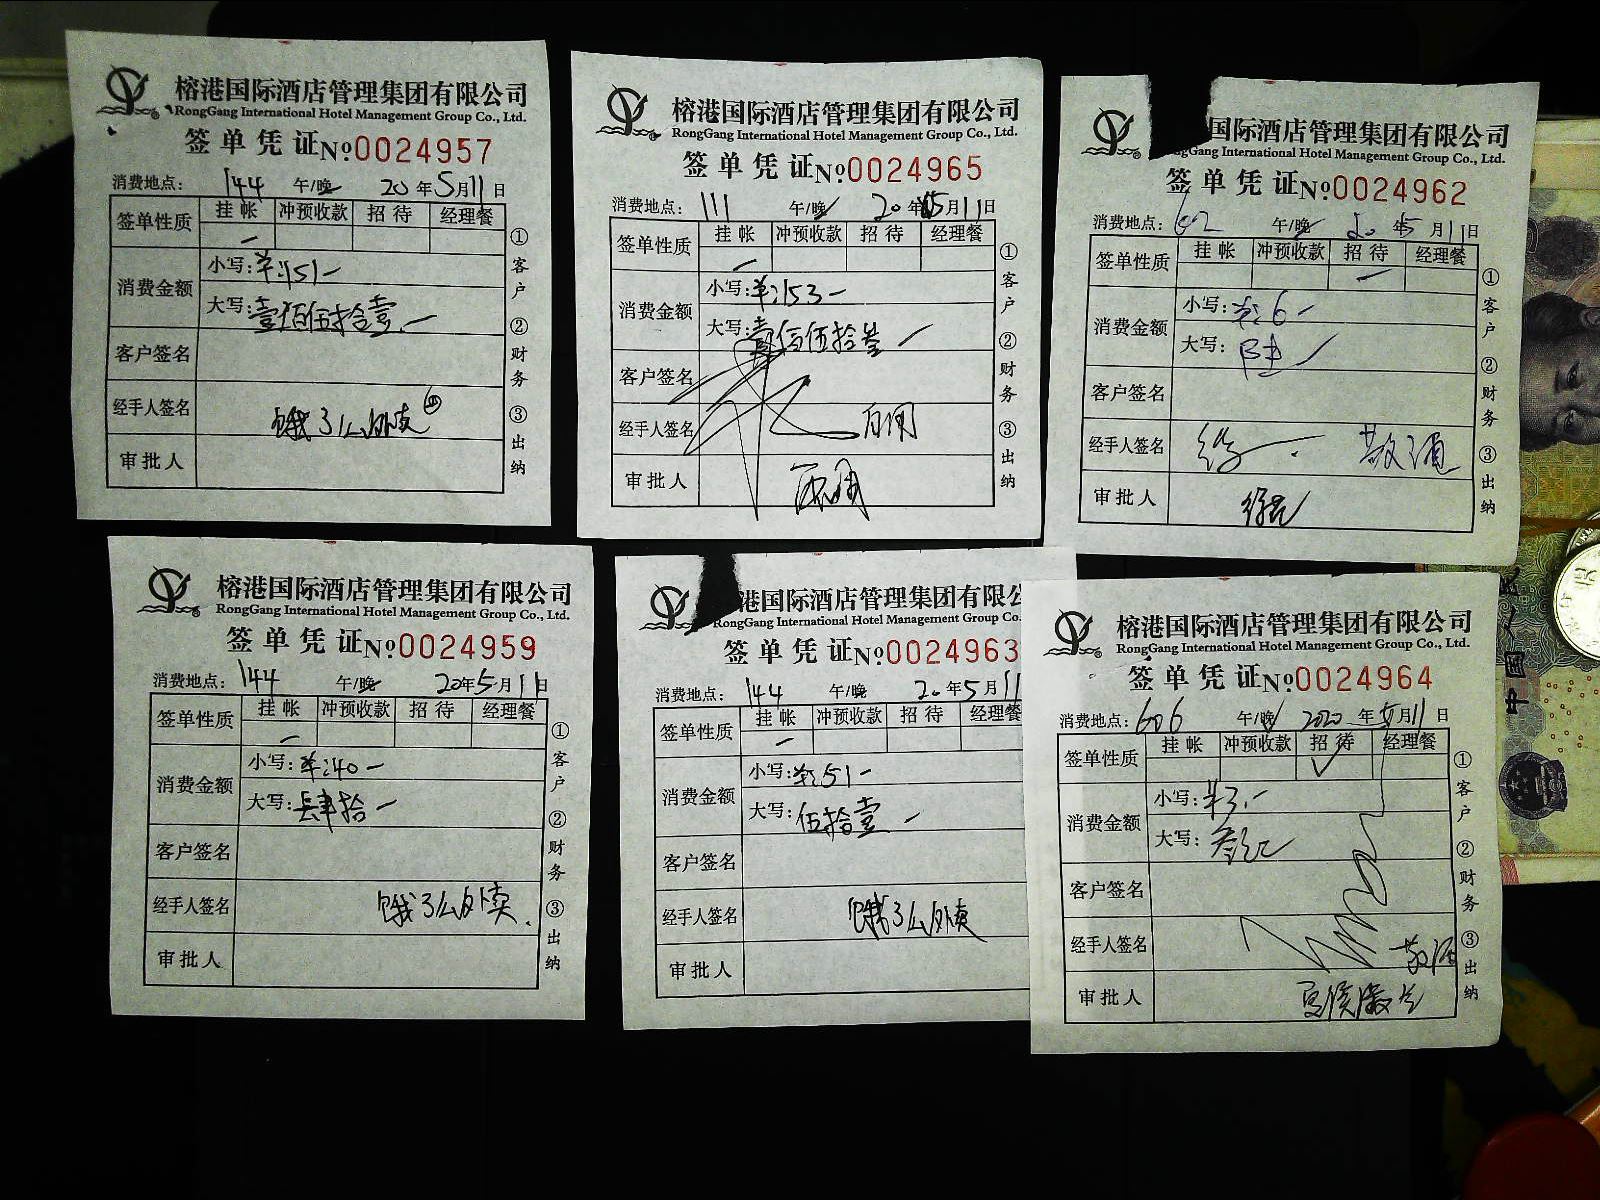 榕港国际酒店管理集团有限公司
RongGang International Hotel Management Group Co., Ltd.
签单凭证 №0024957
消费地点: 144 午/晚 20年5月11日
签单性质 挂帐 冲预收款 招待 经理餐
消费金额 小写: 151
大写: 壹佰伍拾壹
客户签名
经手人签名 饿了么外卖
审批人
①客户 ②财务 ③出纳
榕港国际酒店管理集团有限公司
RongGang International Hotel Management Group Co., Ltd.
签单凭证 №0024965
消费地点: 111 午/晚 20年5月11日
签单性质 挂帐 冲预收款 招待 经理餐
消费金额 小写: 153
大写: 壹佰伍拾叁
客户签名
经手人签名
审批人
①客户 ②财务 ③出纳
国际酒店管理集团有限公司
gGang International Hotel Management Group Co., Ltd.
签单凭证 №0024962
消费地点: 602 午/晚 20年5月11日
签单性质 挂帐 冲预收款 招待 经理餐
消费金额 小写: 6
大写: 陆
客户签名
经手人签名
审批人
①客户 ②财务 ③出纳
榕港国际酒店管理集团有限公司
RongGang International Hotel Management Group Co., Ltd.
签单凭证 №0024959
消费地点: 144 午/晚 20年5月11日
签单性质 挂帐 冲预收款 招待 经理餐
消费金额 小写: 40
大写: 肆拾
客户签名
经手人签名 饿了么外卖
审批人
①客户 ②财务 ③出纳
港国际酒店管理集团有限公
RongGang International Hotel Management Group Co.
签单凭证 №0024963
消费地点: 144 午/晚 20年5月11
签单性质 挂帐 冲预收款 招待 经理餐
消费金额 小写: 51
大写: 伍拾壹
客户签名
经手人签名 饿了么外卖
审批人
榕港国际酒店管理集团有限公司
RongGang International Hotel Management Group Co., Ltd.
签单凭证 №0024964
消费地点: 606 午/晚 2020年5月11日
签单性质 挂帐 冲预收款 招待 经理餐
消费金额 小写: 3
大写: 叁元
客户签名
经手人签名
审批人
①客户 ②财务 ③出纳
中国人民